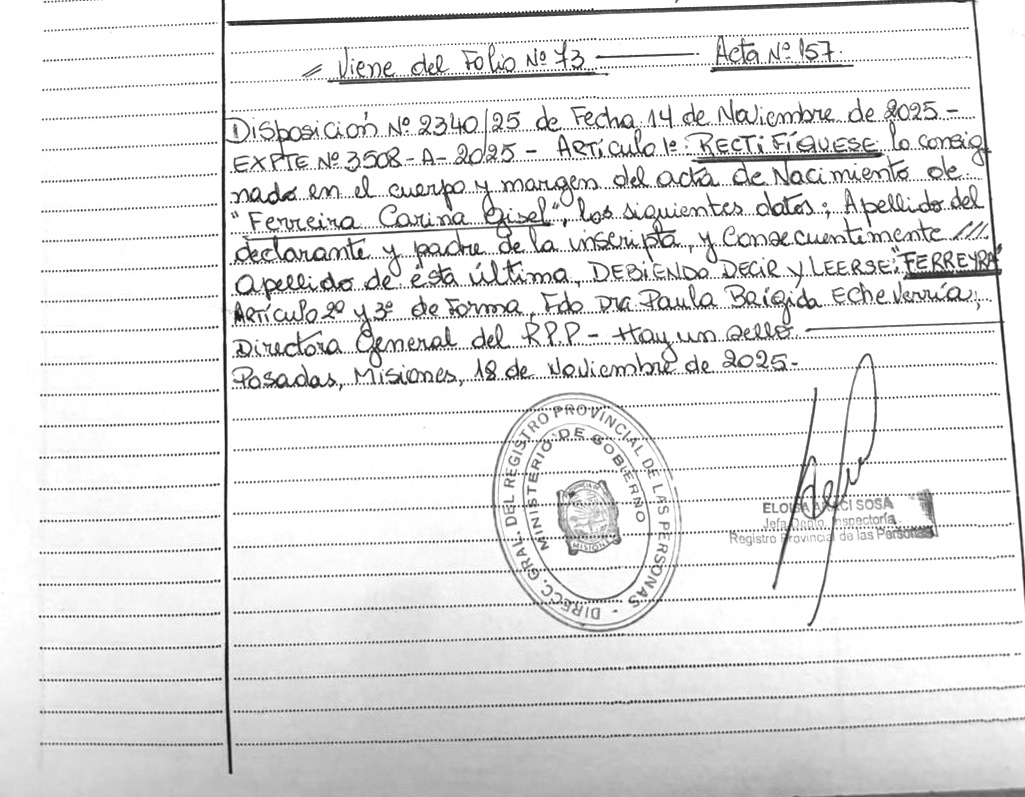 // Viene del Folio Nº 73 ——— Acta Nº 157.
Disposición Nº 2340/25 de Fecha 14 de Noviembre de 2025 -
EXPTE Nº 3508-A-2025 - Artículo 1º: RECTIFÍQUESE lo consig
nado en el cuerpo y margen del acta de Nacimiento de
"Ferreira Carina Gisel", los siguientes datos; Apellido del
declarante y padre de la inscripta, y Consecuentemente ////.
Apellido de ésta última, DEBIENDO DECIR y LEERSE: "FERREYRA"
Artículo 2º y 3º de Forma, Fdo Dra Paula Brígida Echeverría;
Directora General del R.P.P - Hay un sello ———
Posadas, Misiones, 18 de Noviembre de 2025-
DIRECC. GRAL. DEL REGISTRO PROVINCIAL DE LAS PERSONAS -
MINISTERIO DE GOBIERNO
MISIONES
ELOISA SOSA
Jefa Depto. Inspectoría
Registro Provincial de las Personas